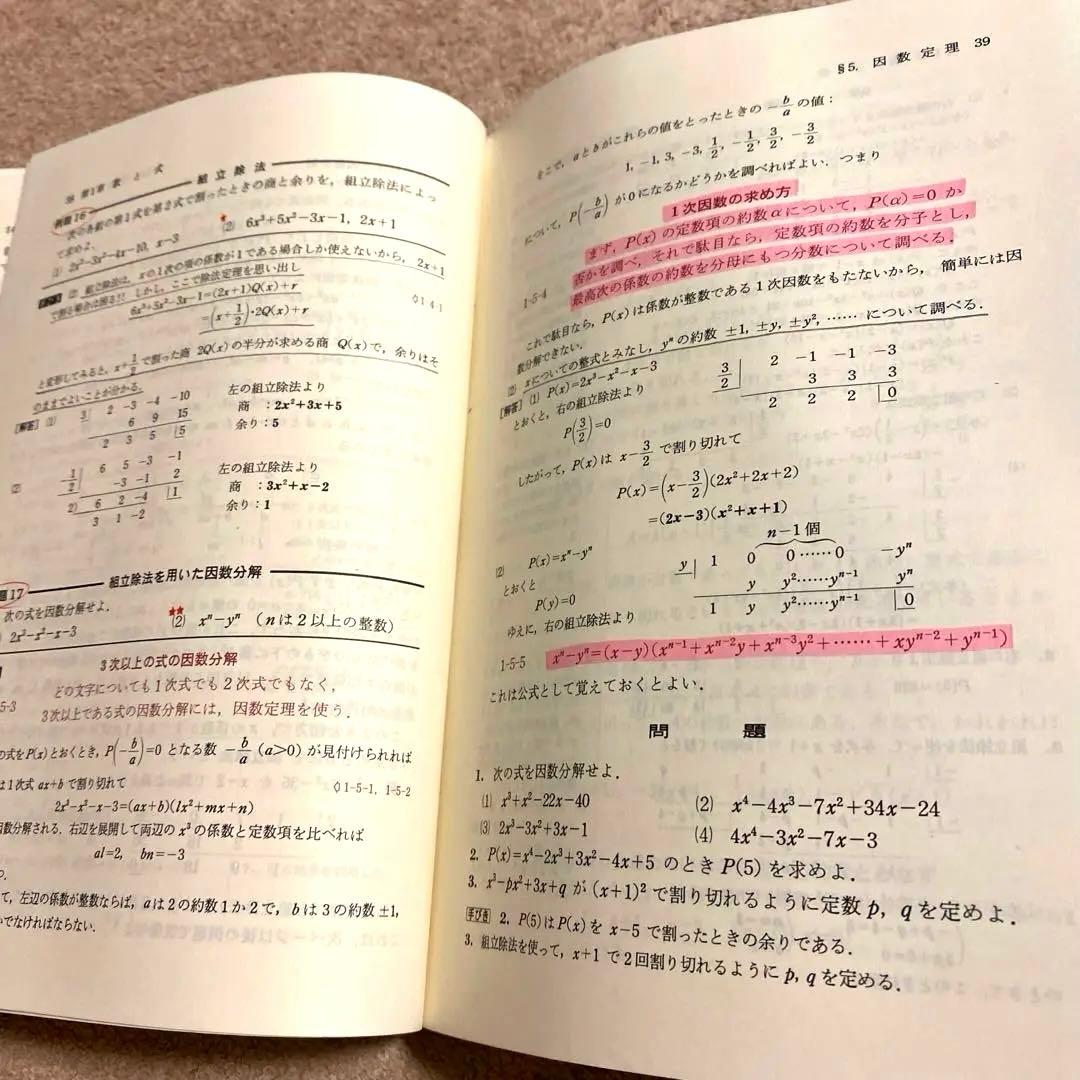 38 第1章 数 と 式
例題16 組立除法
次の各組の第1式を第2式で割ったときの商と余りを，組立除法によっ
て求めよ．
(1) 2x³−3x²−4x−10, x−3 (2) 6x³+5x²−3x−1, 2x+1
(2) 組立除法は，xの1次の項の係数が1である場合しか使えないから，2x+1
で割る場合は困る!! しかし，ここで除法定理を思い出し
6x³+5x²−3x−1=(2x+1)Q(x)+r ◇1-4-1
=(x+1/2)・2Q(x)+r
と変形してみると，x+1/2 で割った商 2Q(x) の半分が求める商 Q(x) で，余りはそ
のままでよいことが分かる．
[解答] (1) 3 2 −3 −4 −10 左の組立除法より
6 9 15 商 ：2x²+3x+5
2 3 5 5 余り：5
(2) 1/2 6 5 −3 −1 左の組立除法より
−3 −1 2 商 ：3x²+x−2
2) 6 2 −4 1 余り：1
3 1 −2
題17 組立除法を用いた因数分解
次の式を因数分解せよ．
2x³−x²−x−3 (2) xⁿ−yⁿ (n は 2 以上の整数)
3次以上の式の因数分解
5-3 どの文字についても1次式でも2次式でもなく，
3次以上である式の因数分解には，因数定理を使う．
の式を P(x) とおくとき，P(−b/a)=0 となる数 −b/a (a>0) が見付けられれば
は1次式 ax+b で割り切れて ◇1-5-1, 1-5-2
2x³−x²−x−3=(ax+b)(lx²+mx+n)
因数分解される．右辺を展開して両辺の x³ の係数と定数項を比べれば
al=2, bn=−3
つ．
て，左辺の係数が整数ならば，a は 2 の約数 1 か 2 で，b は 3 の約数 ±1,
かでなければならない．
§5. 因数定理 39
そこで，a と b がこれらの値をとったときの −b/a の値：
1, −1, 3, −3, 1/2, −1/2, 3/2, −3/2
について，P(−b/a) が 0 になるかどうかを調べればよい．つまり
1次因数の求め方
まず，P(x) の定数項の約数 α について，P(α)=0 か
否かを調べ，それで駄目なら，定数項の約数を分子とし，
1-5-4 最高次の係数の約数を分母にもつ分数について調べる．
これで駄目なら，P(x) は係数が整数である1次因数をもたないから，簡単には因
数分解できない．
(2) x についての整式とみなし，yⁿ の約数 ±1, ±y, ±y², …… について調べる．
[解答] (1) P(x)=2x³−x²−x−3 3/2 2 −1 −1 −3
とおくと，右の組立除法より 3 3 3
P(3/2)=0 2 2 2 0
したがって，P(x) は x−3/2 で割り切れて
P(x)=(x−3/2)(2x²+2x+2)
=(2x−3)(x²+x+1)
n−1個
(2) P(x)=xⁿ−yⁿ y 1 0 0……0 −yⁿ
とおくと y y²……yⁿ⁻¹ yⁿ
P(y)=0 1 y y²……yⁿ⁻¹ 0
ゆえに，右の組立除法より
1-5-5 xⁿ−yⁿ=(x−y)(xⁿ⁻¹+xⁿ⁻²y+xⁿ⁻³y²+……+xyⁿ⁻²+yⁿ⁻¹)
これは公式として覚えておくとよい．
問 題
1. 次の式を因数分解せよ．
(1) x³+x²−22x−40 (2) x⁴−4x³−7x²+34x−24
(3) 2x³−3x²+3x−1 (4) 4x⁴−3x²−7x−3
2. P(x)=x⁴−2x³+3x²−4x+5 のとき P(5) を求めよ．
3. x³−px²+3x+q が (x+1)² で割り切れるように定数 p, q を定めよ．
2. P(5) は P(x) を x−5 で割ったときの余りである．
3. 組立除法を使って，x+1 で2回割り切れるように p, q を定める．